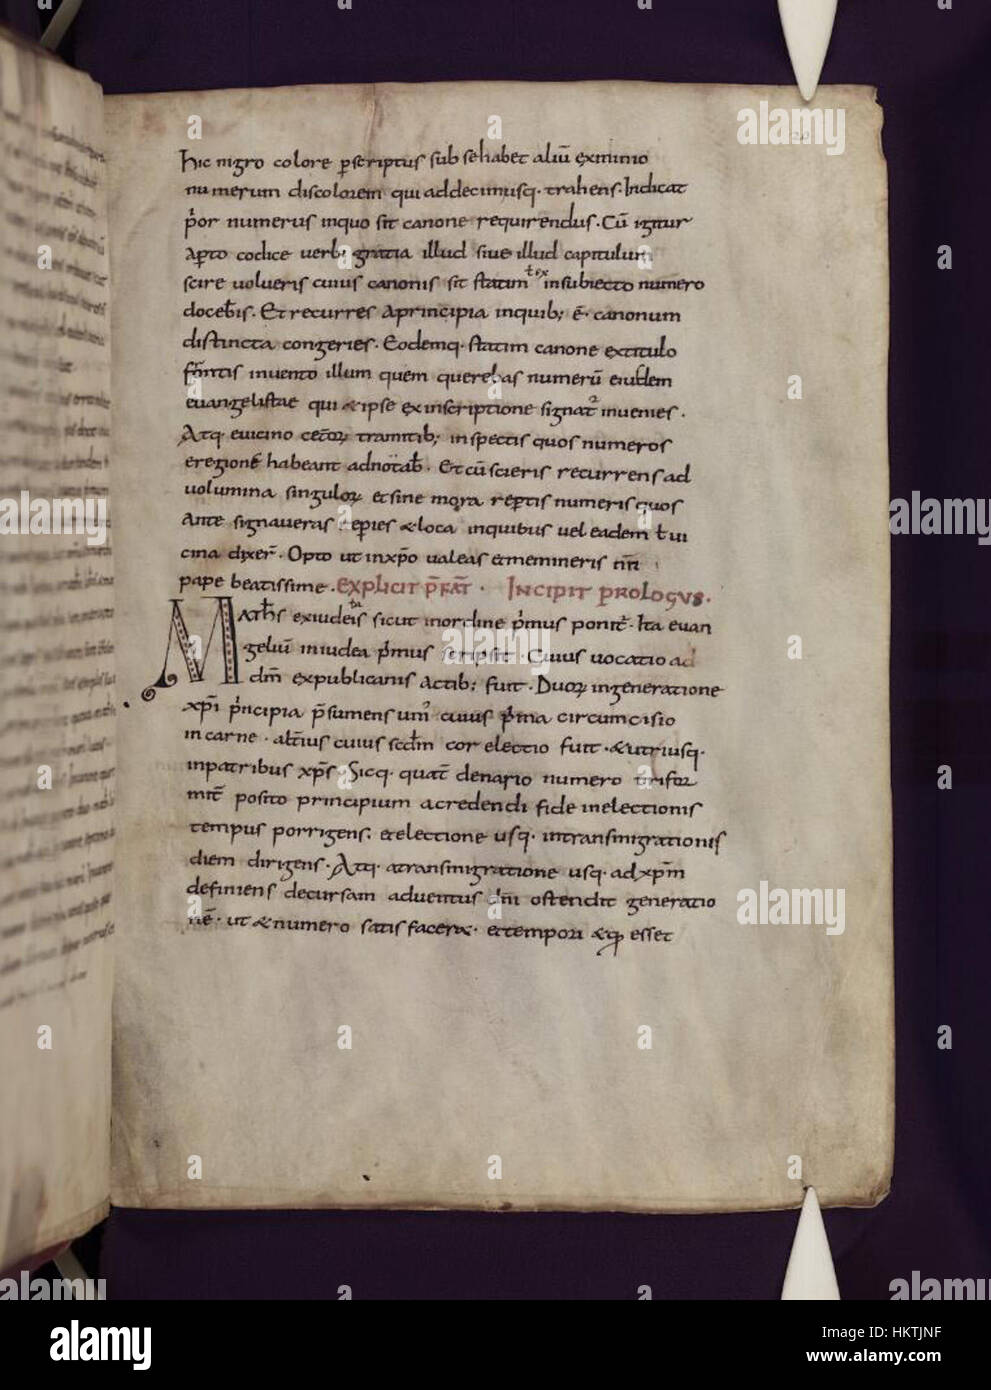 20
hic nigro colore p̄scriptus sub se habet aliū ex minio
numerum discolorem qui ad decimusq· trahens. Indicat
p̓or numerus in quo sit canone requirendus. Cū igitur
apto codice verbi gratia illud sive illud capitulum
scire volueris cuius canonis sit statim ł ex in subiecto numero
doceb̄is. Et recurres a principia in quib; ē· canonum
distincta congeries. Eodemq· statim canone ex titulo
frōntis invento illum quem querebas numerū eiusdem
evangelistae qui & ipse ex inscriptione signat᷑ invenies.
Atq· e vicino ceterorꝝ tramitib; inspectis quos numeros
e regione habeant adnotab̄. Et cū scieris recurrens ad
volumina singulorꝝ et sine mora rep̄tis numeris quos
ante signaveras repp̄ies & loca in quibus vel eadem ł vi
cina dixer̄. Opto ut in xp̄o valeas et memineris m̄
pape beatissime. Explicit p̄fat̄. Incipit prologus.
Math̄s ex iudeis sicut in ordine p̓mus ponit᷑. Ita evan
geliū in iudea p̓mus scripsit. Cuius vocatio ad
dm̄ ex publicanis actib; fuit. Duorꝝ in generatione
xp̄i p̓ncipia p̄sumens un̓ cuius p̓ma circumcisio
in carne. alt̄ius cuius scdm̄ cor electio fuit. & utriusq·
in patribus xp̄s. Sicq· quat̄ denario numero t̓rifor
mit̄ posito principium a credendi fide in electionis
tempus porrigens. et electione usq· in transmigrationis
diem dirigens. Atq· a transmigratione usq· ad xpm̄
definiens decursam adventus dn̄i ostendit generatio
nē. ut & numero satisfacer&. et tempori & q̄ esset
alamy
Image ID: HKTJNF
www.alamy.com